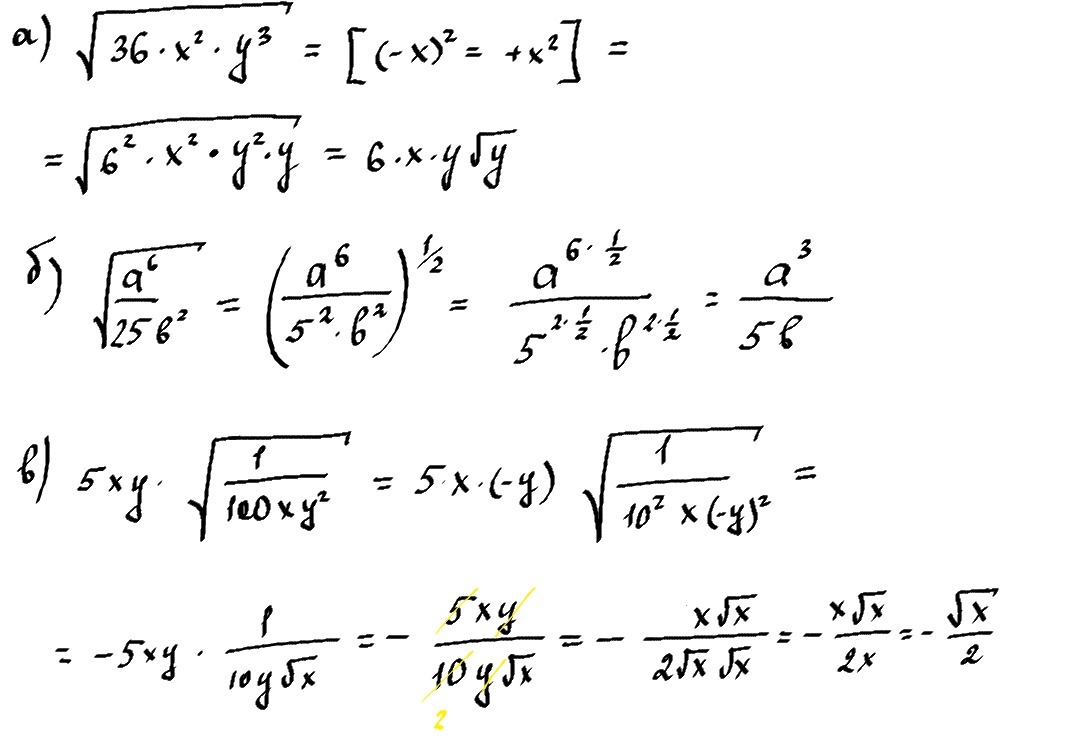 а) √(36 · x² · y³) = [(-x)² = +x²] =
= √(6² · x² · y² · y) = 6 · x · y √y
б) √(a⁶/(25в²)) = (a⁶/(5² · в²))^(1/2) = a^(6 · 1/2)/(5^(2 · 1/2) · в^(2 · 1/2)) = a³/(5в)
в) 5xy · √(1/(100xy²)) = 5 · x · (-y) √(1/(10² x(-y)²)) =
= -5xy · 1/(10y√x) = - 5xy/(10y√x) = - x√x/(2√x √x) = - x√x/(2x) = - √x/2
2